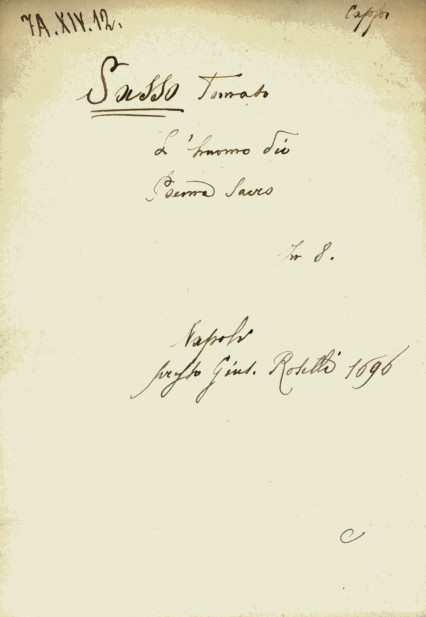 7A.XIV.12.
Sasso Tomaso
L'huomo Dio
Poema Sacro
In 8.
Napoli
presso Gius. Roselli 1696
C